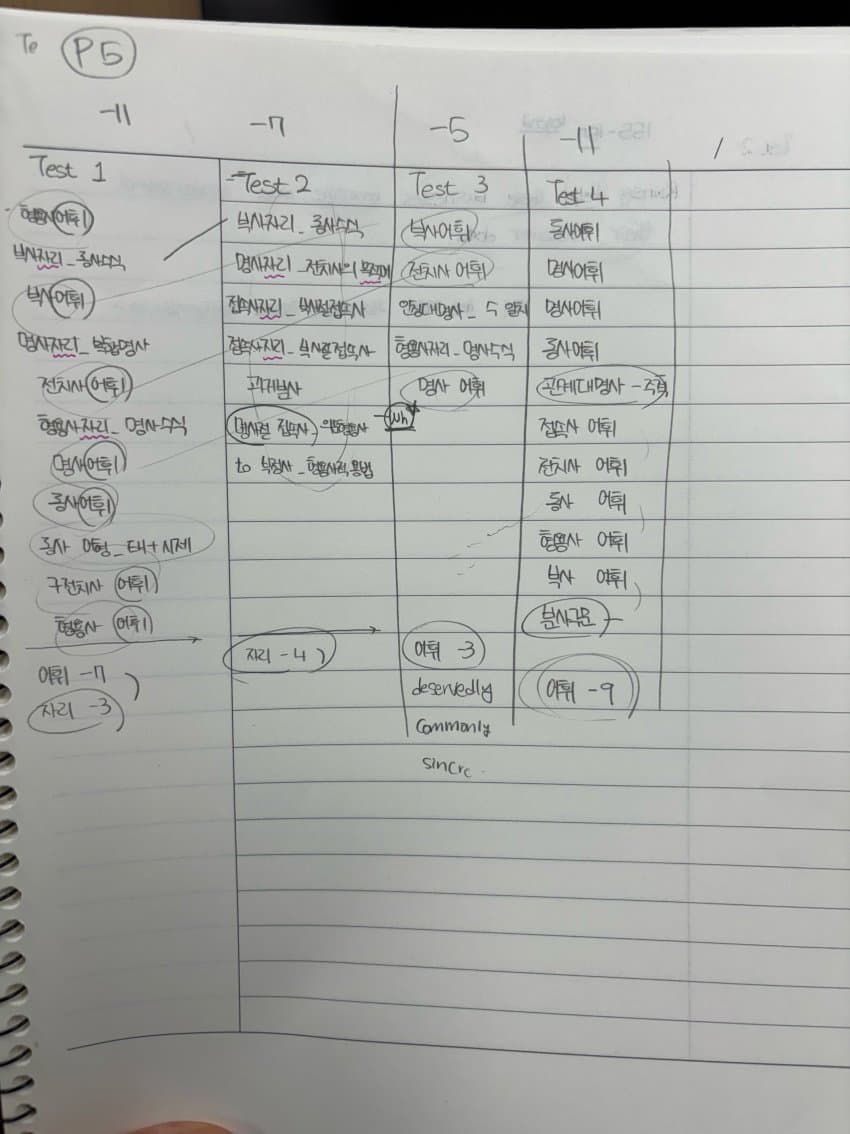 Te P5
-11
-7
-5
-11
Test 1
형용사어휘
부사자리_동사수식
부사어휘
명사자리_복합명사
전치사어휘
형용사자리_명사수식
명사어휘
동사어휘
동사 어형_태+시제
구전치사 어휘
형용사 어휘
어휘 -7
자리 -3
Test 2
부사자리_동사수식
명사자리_전치사의 목적어
접속사자리_부사절접속사
접속사자리_부사절접속사
관계부사
명사절 접속사_의문형용사 -Wh
to 부정사_형용사적 용법
자리 -4
Test 3
부사어휘
전치사 어휘
인칭대명사_수 일치
형용사자리_명사수식
명사 어휘
어휘 -3
deservedly
commonly
Test 4
동사어휘
명사어휘
명사어휘
동사어휘
관계대명사 -주격
접속사 어휘
전치사 어휘
동사 어휘
형용사 어휘
부사 어휘
분사구문
어휘 -9